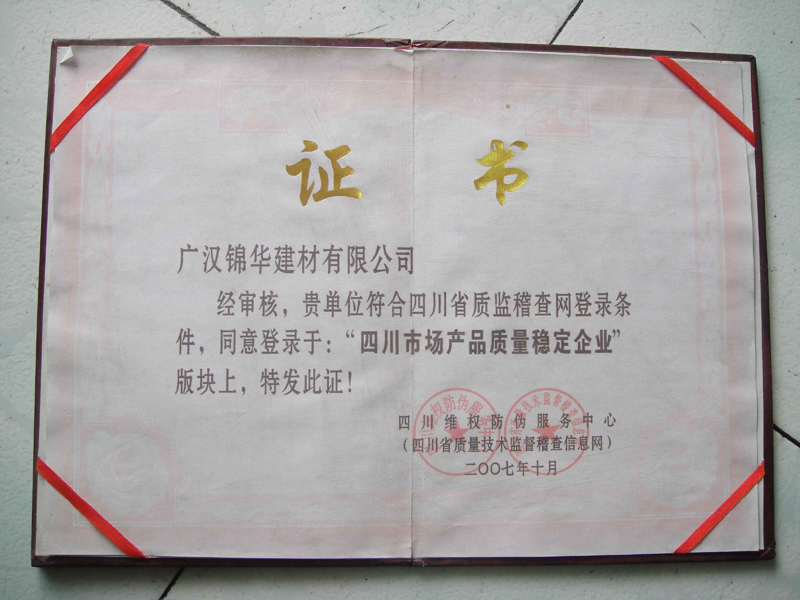 证书
广汉锦华建材有限公司
经审核，贵单位符合四川省质监稽查网登录条
件，同意登录于：“四川市场产品质量稳定企业”
版块上，特发此证！
四川维权防伪服务中心
（四川省质量技术监督稽查信息网）
二〇〇七年十月